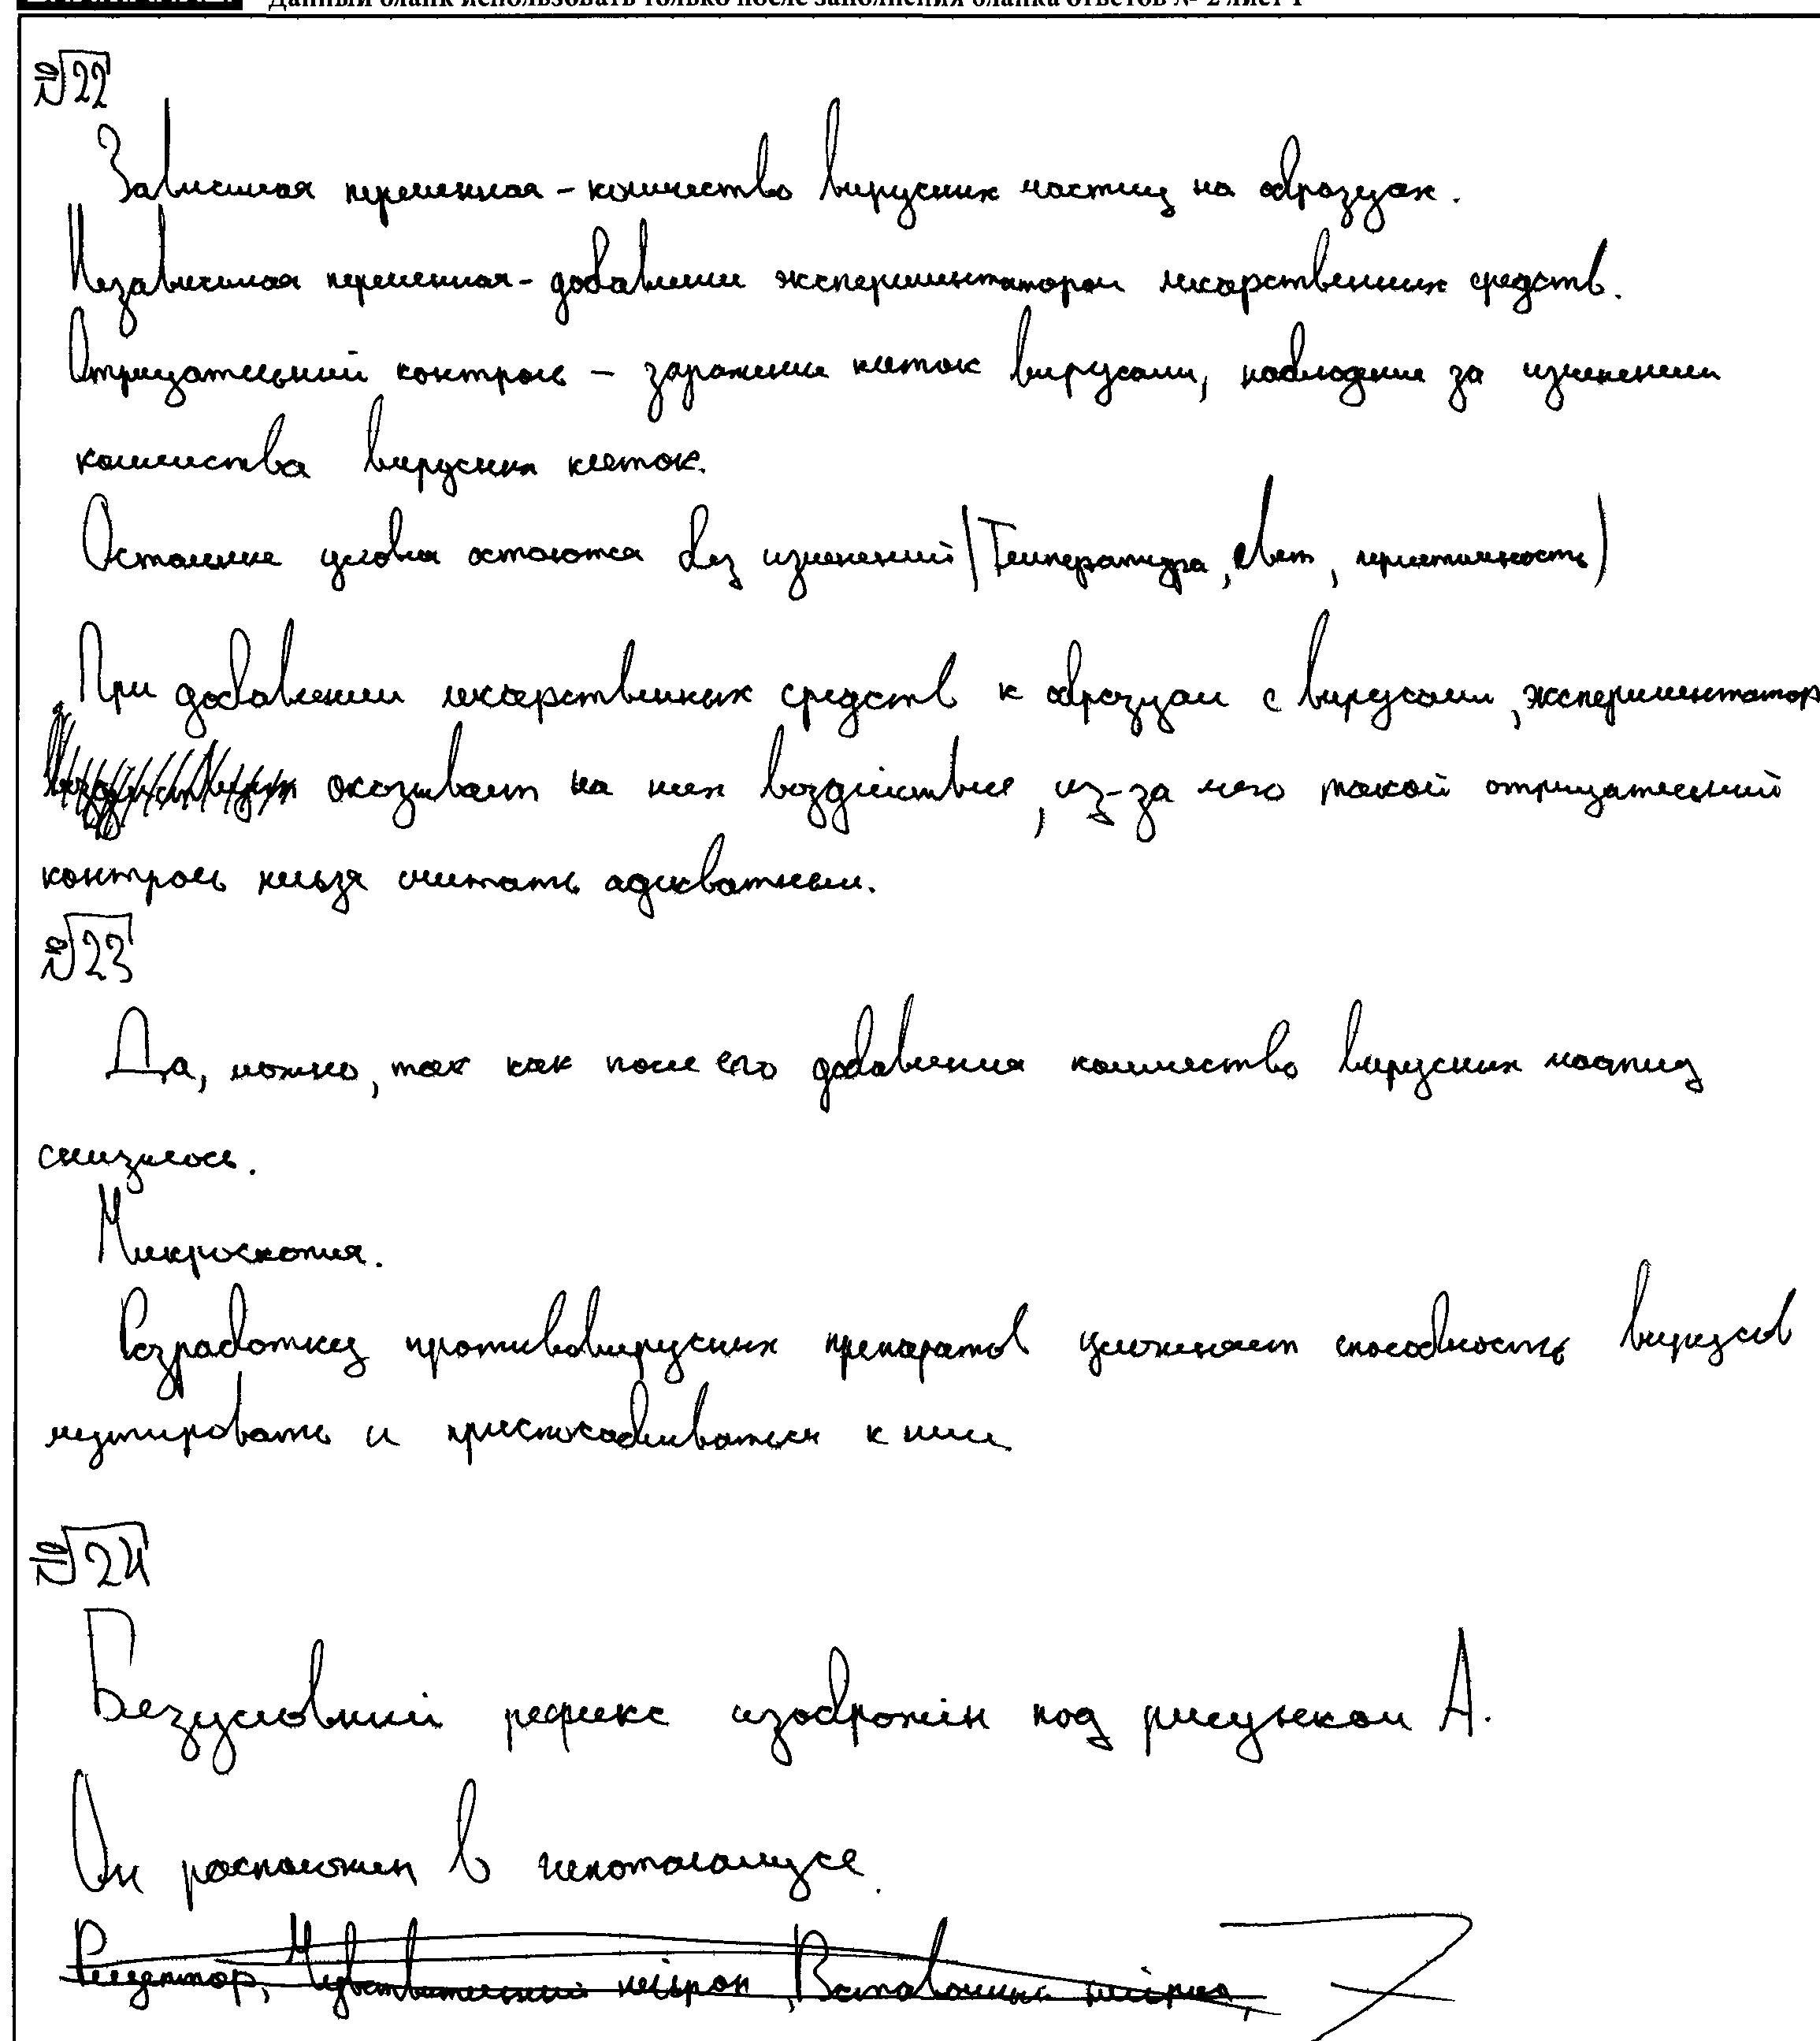 Данный бланк использовать только после заполнения бланка ответов № 2 лист 1
№22
Зависимая переменная - количество вирусных частиц на образцах.
Независимая переменная - добавление экспериментатором лекарственных средств.
Отрицательный контроль - заражение клеток вирусами, наблюдение за изменением
количества вирусных клеток.
Остальные условия остаются без изменений (Температура, свет, герметичность)
При добавлении лекарственных средств к образцам с вирусами, экспериментатор
оказывает на них воздействие, из-за чего такой отрицательный
контроль нельзя считать адекватным.
№23
Да, можно, так как после его добавления количество вирусных частиц
снизилось.
Микроскопия.
Разработку противовирусных препаратов усложняет способность вирусов
мутировать и приспосабливаться к ним
№24
Безусловный рефлекс изображён под рисунком А.
Он расположен в гипоталамусе.
Рецептор, Чувствительный нейрон, Вставочный нейрон,